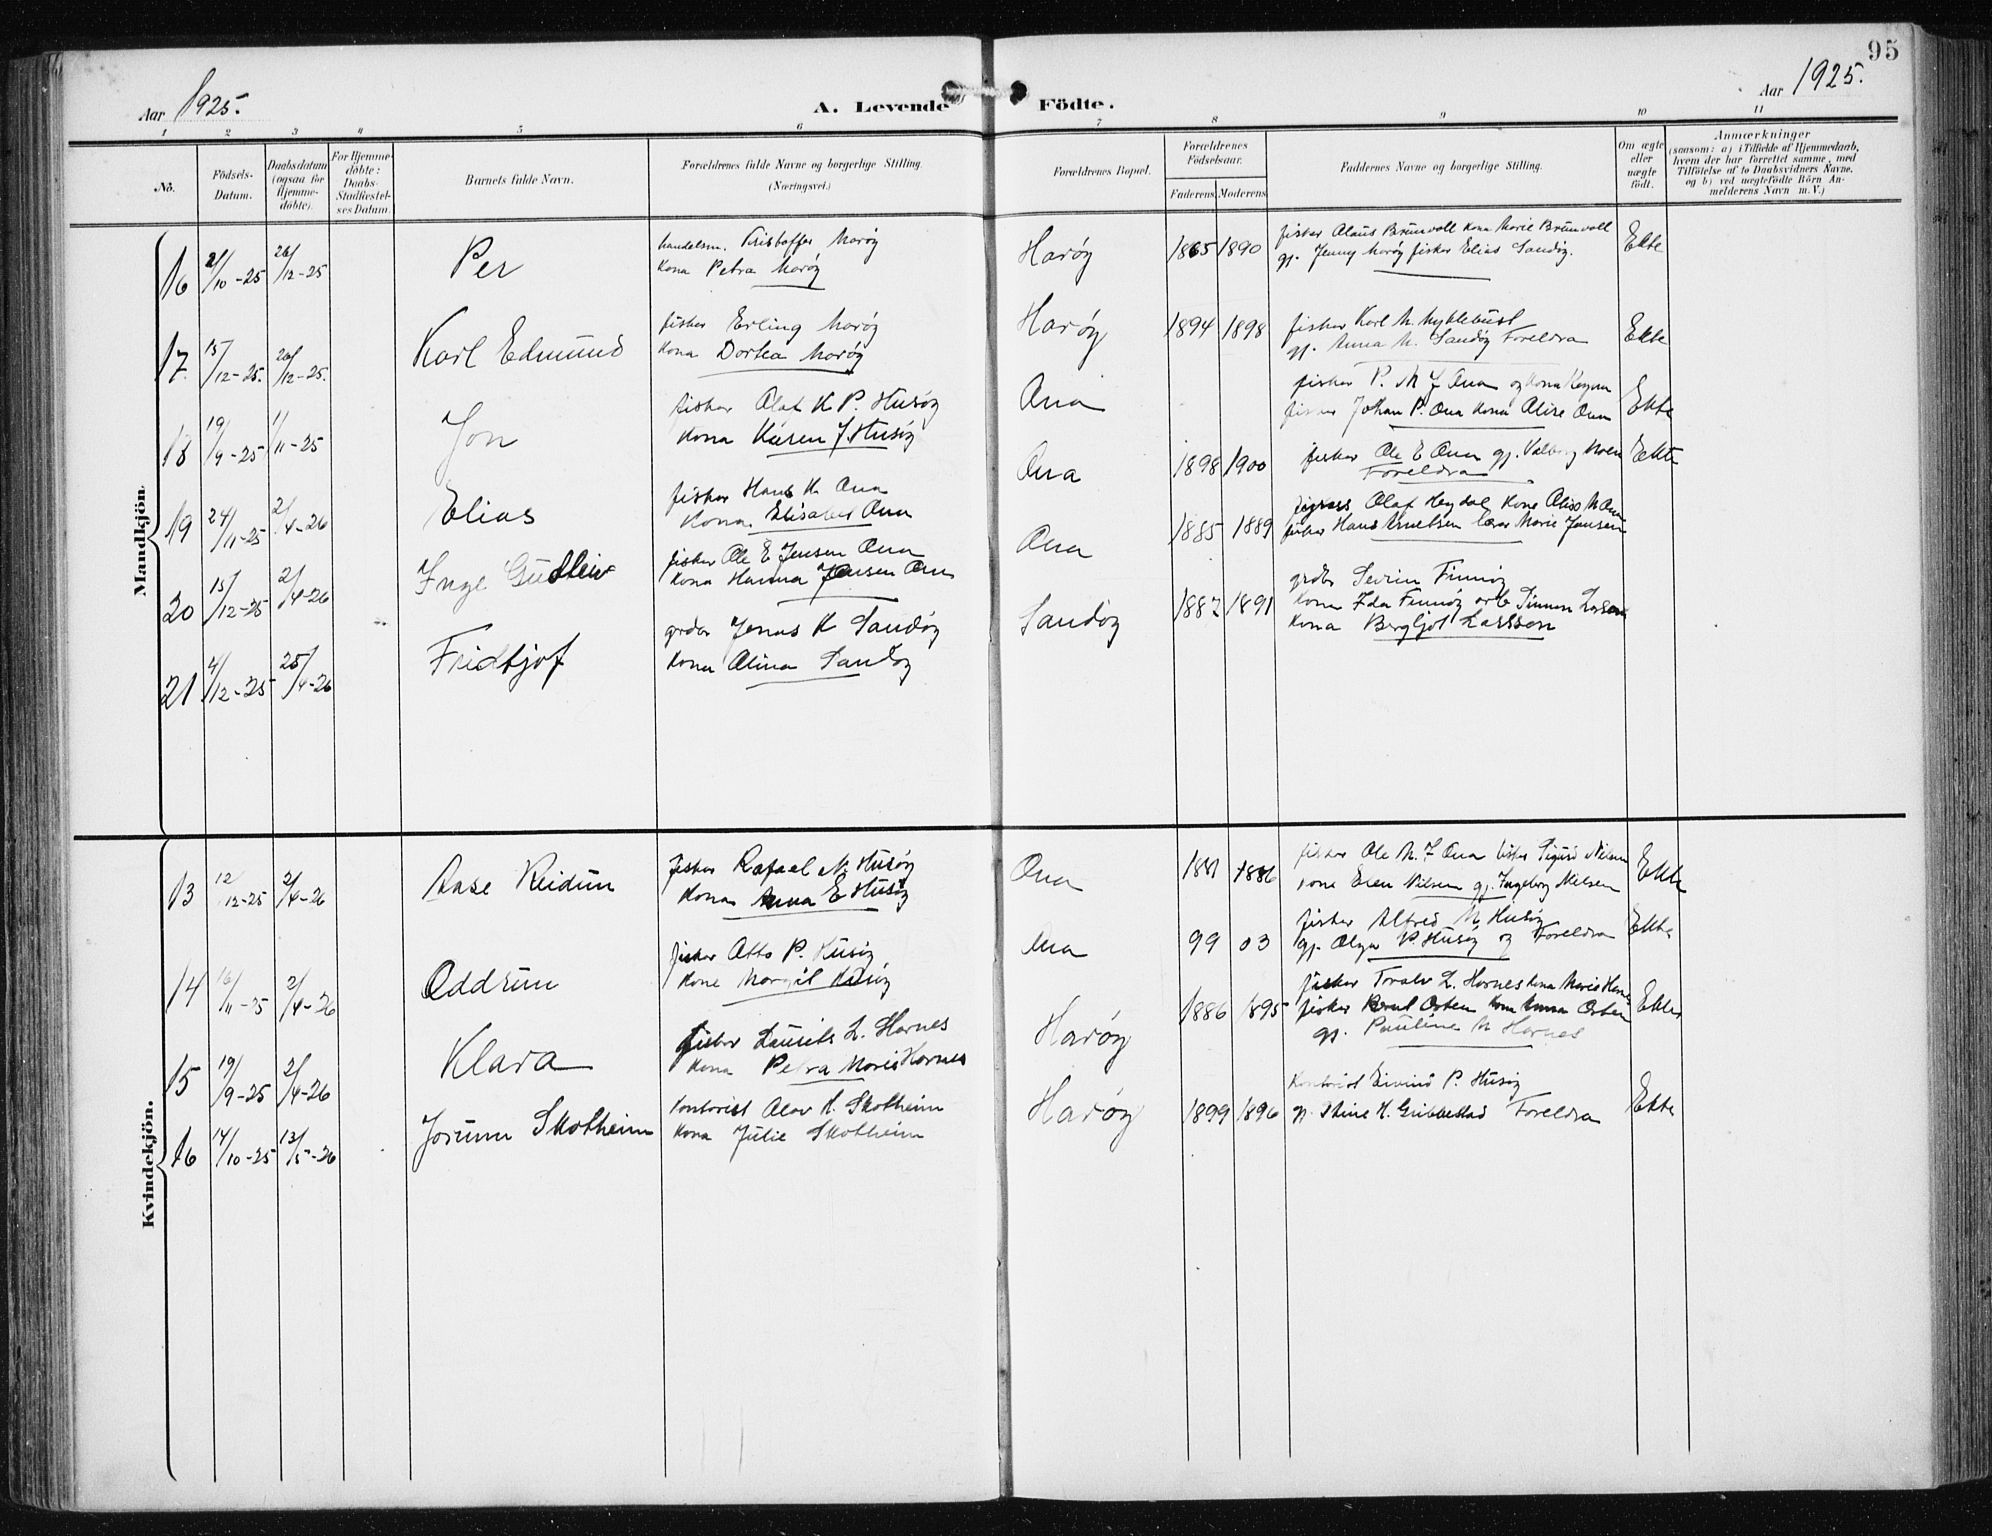 95
Aar 1925.
A. Levende Födte.
Aar 1925.
1 2 3 4 5 6 7 8 9 10 11
No.
Födsels-Datum.
Daabsdatum (ogsaa for Hjemme-döbte).
For Hjemme-döbte: Daabs-Stadfæstel-ses Datum.
Barnets fulde Navn.
Forældrenes fulde Navne og borgerlige Stilling. (Næringsvei.)
Forældrenes Bopæl.
Forældrenes Födselsaar.
Faderens Moderens
Faddernes Navne og borgerlige Stilling.
Om ægte eller uægte födt.
Anmærkninger
(saasom: a) i Tilfælde af Hjemmedaab,
hvem der har forrettet samme, med
Tilföielse af to Daabsvidners Navne,
og b) ved uægtefödte Börn An-
melderens Navn m. V.)
Mandkjön
16 2/10-25 26/12-25 Per
handelsm. Kristoffer Harøy
Kona Petra Harøy
Harøy 1865 1890
fisker Claus Brunvoll Kona Marie Brunvoll
gj. Jenny Harøy fisker Elias Sandøy.
Ekte
17 15/12-25. 26/12-25. Karl Edmund
fisker Erling Harøy
Kona Dortea Harøy
Harøy 1894 1898
fisker Karl M. Myklebust
gj. Anna M. Sandøy Foreldra
Ekte
18 19/9-25 1/11-25 Jon
fisker Olaf K P. Husøy
Kona Karen J. Husøy
Ona
fisker P. M J Ona og Kona
fisker Johan P. Ona Kona Alise Ona
Ekte
19 24/11-25 2/4-26 Elias
fisker Hans K. Ona
Kona Elisabet Ona
Ona 1898 1900
fisker Ole E Ona gj. Valborg
Foreldra
Ekte
20 15/12-25 2/4-26 Inge Gudleiv
fisker Ole E Jensen Ona
Kona Hanna Jensen Ona
Ona 1885 1889
Olaf Kona M Ona
fisker Hans Marie Jensen
21 4/12-25 25/4-26 Fridtjof
grdbr Jonas K Sandøy
Kona Alina Sandøy
Sandøy 1887 1891
grdbr Severin Finnøy
Kona Ida Finnøy
Kona Bergljot Larssen
Kvindekjön.
13 12/12-25 2/4-26 Aase Reidun
fisker Rafael N. Husøy
Kona Anna E Husøy
Ona 1881 1886
fisker Ole M. J Ona fisker Sigurd Nilsen
Kona Nilsen gj. Ingeborg Nilsen
Ekte
14 16/11-25 2/4-26 Oddrun
fisker Otto P. Husøy
Kone Margit Husøy
Ona 99 03
fisker Alfred M Husøy
gj. Olga P. Husøy og Foreldra
Ekte
15 19/9-25 2/4-26 Klara
fisker Laurits L. Harnes
Kona Petra Marie Harnes
Harøy 1886 1895
fisker Toralv L. Harnes Kona Marie
fisker Bernt Orten Kona Anna Orten
gj. Pauline M Harnes
Ekte
16 14/10-25 13/5-26 Jorunn Skotheim
Kontorist Olav K. Skotheim
Kona Julie Skotheim
Harøy 1899 1896
Kontorist Eivind P. Husøy
gj. Stine H. Gribbestad Foreldra
Ekte